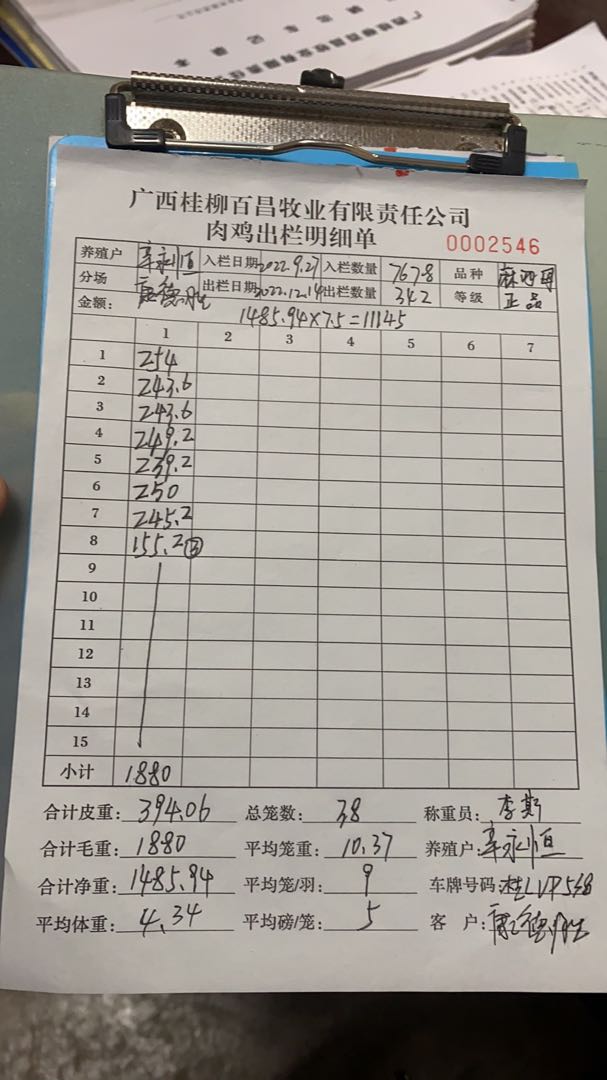 广西桂柳百昌牧业有限责任公司
肉鸡出栏明细单
0002546
养殖户 辛永恒 入栏日期 2022.9.27 入栏数量 7678 品种 麻鸡
分场 出栏日期 2022.12.14 出栏数量 342 等级 正品
金额: 1485.94×7.5=11145
1 2 3 4 5 6 7
1 254
2 243.6
3 243.6
4 249.2
5 239.2
6 250
7 245.2
8 155.2 ③
9
10
11
12
13
14
15
小计 1880
合计皮重: 394.06 总笼数: 38 称重员: 李斯
合计毛重: 1880 平均笼重: 10.37 养殖户: 辛永恒
合计净重: 1485.94 平均笼/羽: 9 车牌号码: 桂LVP538
平均体重: 4.34 平均磅/笼: 5 客 户: